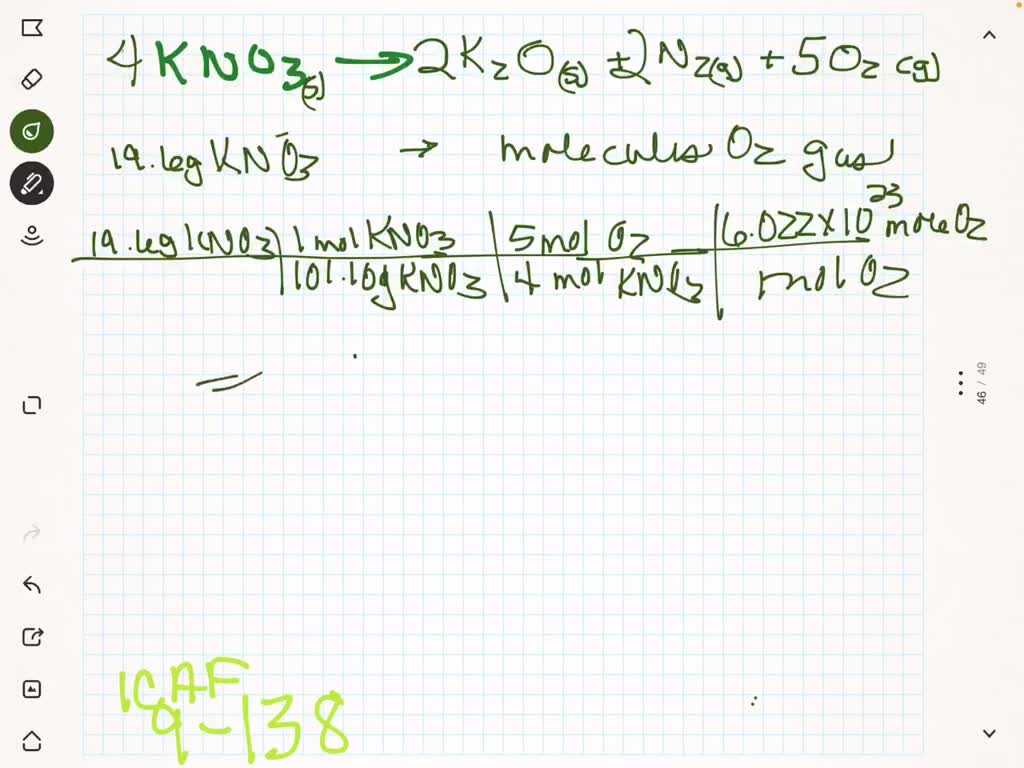 4 KNO3(s) → 2K2O(s) + 2N2(g) + 5O2(g)
19.6g KNO3 → molecules O2 gas
19.6g KNO3 | 1 mol KNO3 | 5 mol O2 | 6.022×10^23 molec O2
101.10g KNO3 | 4 mol KNO3 | mol O2
=
46 / 49
ICAF
9-138